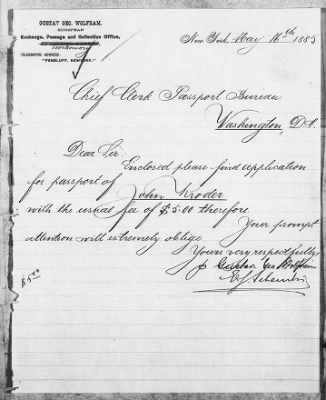 GUSTAV GEO. WOLFRAM,
EUROPEAN
Exchange, Passage and Collection Office,
Bowery
TELEGRAPHIC ADDRESS:
New York, May 16th 1885
Chief Clerk Passport Bureau
Washington, D.C.
Dear Sir
Enclosed please find application
for passport of John Kroder
with the usual fee of $5.00 therefore
Your prompt
attention will extremely oblige
Yours very respectfully
p Gustav Geo Wolfram
$5.00